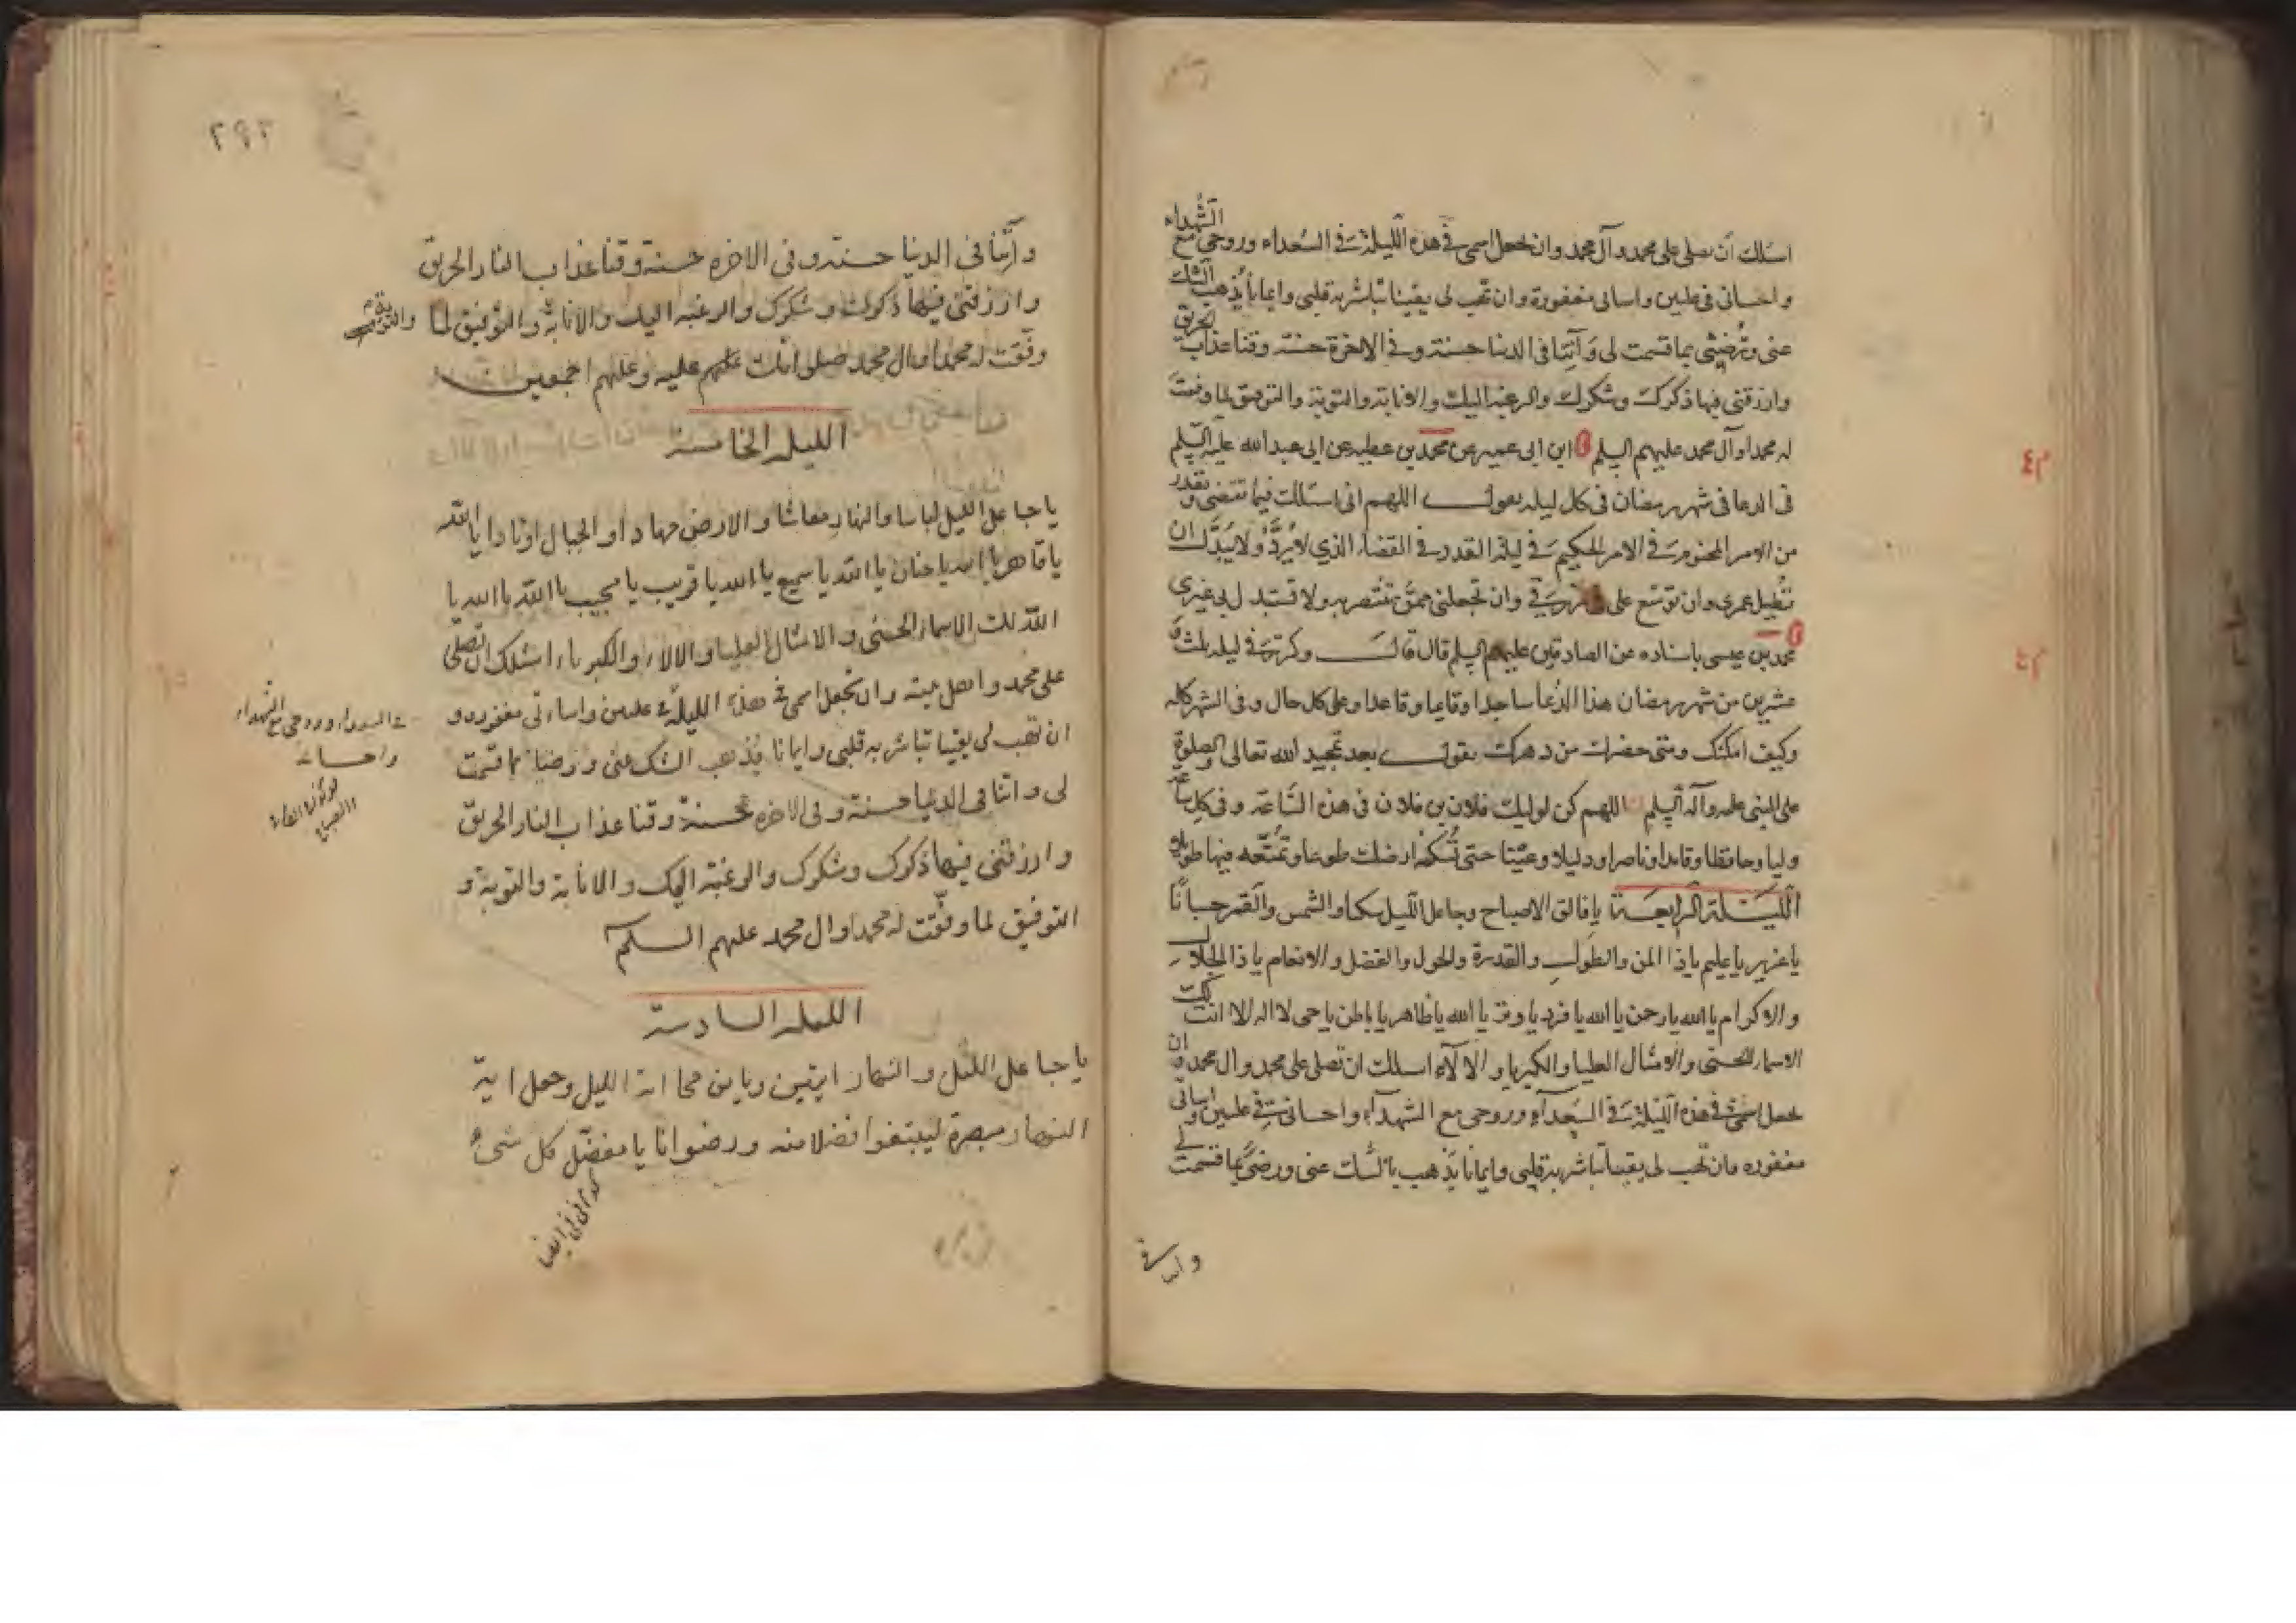 الشهداء
اسئلك ان تصلي على محمد وآل محمد وان تجعل اسمي في هذه الليلة في السعداء وروحي مع
واحساني في عليين واساتي مغفورة وان تهب لي يقينا تباشر به قلبي وايمانا يُذهب الشك
عني وتُرضيني بما قسمت لي وَآتِنا في الدنيا حسنة وفي الآخرة حسنة وقنا عذاب الحريق
وارزقني فيها ذكرك وشكرك والرغبة اليك والانابة والتوبة والتوفيق لما وفقت
له محمدا وآل محمد عليهم السلم ابن ابى عمير عن محمد بن عطيه عن ابى عبد الله عليه السلم
فى الدعا فى شهر رمضان فى كل ليله تقول اللهم انى اسئلك فيما تقضى وتقدر
من الامر المحتوم في الامر الحكيم في ليلة القدر في القضاء الذي لا يُردُّ ولا يُبَدَّل ان
تُطيل عمرى وان توسّع على في رزقي وان تجعلنى ممّن تنتصر به ولا تستبدل بى غيرى
محمد بن عيسى باسناده عن الصادقين عليهم السلم قال قال وكرّر في ليلة ثلث
عشرين من شهر رمضان هذا الدُّعا ساجدا وقايما وقاعدا وعلى كل حال وفى الشهر كله
وكيف امكنك ومتى حضرك من دهرك تقول بعد تمجيد الله تعالى والصلوة
على النبى عليه وآله السلم اللهم كن لوليك فلان بن فلان فى هذه السَّاعة وفى كل ساعة
وليا وحافظا وقايدا وناصرا ودليلا وعَيْنا حتى تُسْكنه ارضك طوعا وتمتّعه فيها طويلا
الليلة الرابعة يا فالق الاصباح وجاعل الليل سكنا والشمس والقمر حسبانًا
يا عزيز يا عليم يا ذا المن والطول والقدرة والحول والفضل والانعام يا ذا الجلال
والاكرام يا الله يا رحمن يا الله يا فرد يا وتر يا الله يا ظاهر يا باطن يا حى لا اله الا انت لك
الاسماء الحسنى والامثال العليا والكبريا والآلآء اسئلك ان تصلى على محمد وال محمد وان
تجعل اسمى في هذه اللّيلة في السّعدآء وروحى مع الشهدآء واحسانى في عليين واساتى
مغفورة وان تهب لى يقينا تباشر به قلبى وايمانا يَذهب بالشك عنى ورضًى بما قسمت لى
وآتنا في
٢٩٢
وآتِنا فى الدنيا حسنة وفى الاخره حسنة وقنا عذاب النار الحريق
وارزقنى فيها ذكرك وشكرك والرغبة اليك والانابة والتوفيق لما
وفّقت له محمدا وال محمد صلواتك عليه وعليهم اجمعين
الليله الخامسة
يا جاعل الليل لباسا والنهار معاشا والارض مهادا والجبال اوتادا يا الله
يا قاهر يا الله يا حنان يا الله يا سميع يا الله يا قريب يا مجيب يا الله يا الله يا
الله لك الاسماء الحسنى والامثال العليا والالاء والكبرياء اسئلك ان تصلى
على محمد واهل بيته وان تجعل اسمى في هذه الليلة في عليين واساءتى مغفوره و
في السعداء وروحى مع الشهداء
واحسانى
ان تهب لى يقينا تباشر به قلبى وايمانا يُذهب الشك عنى ورضا بما قسمت
لى واتنا فى الدنيا حسنة وفى الاخره حسنةً وقنا عذاب النار الحريق
وارزقنى فيها ذكرك وشكرك والرغبة اليك والانابة والتوبة و
التوفيق لما وفّقت له محمدا وال محمد عليهم السلم
الليله السادسة
يا جاعل الليل والنهار ايتين ويا من محا اية الليل وجعل اية
النهار مبصرة ليبتغوا فضلا منه ورضوانا يا مفصّل كل شىء